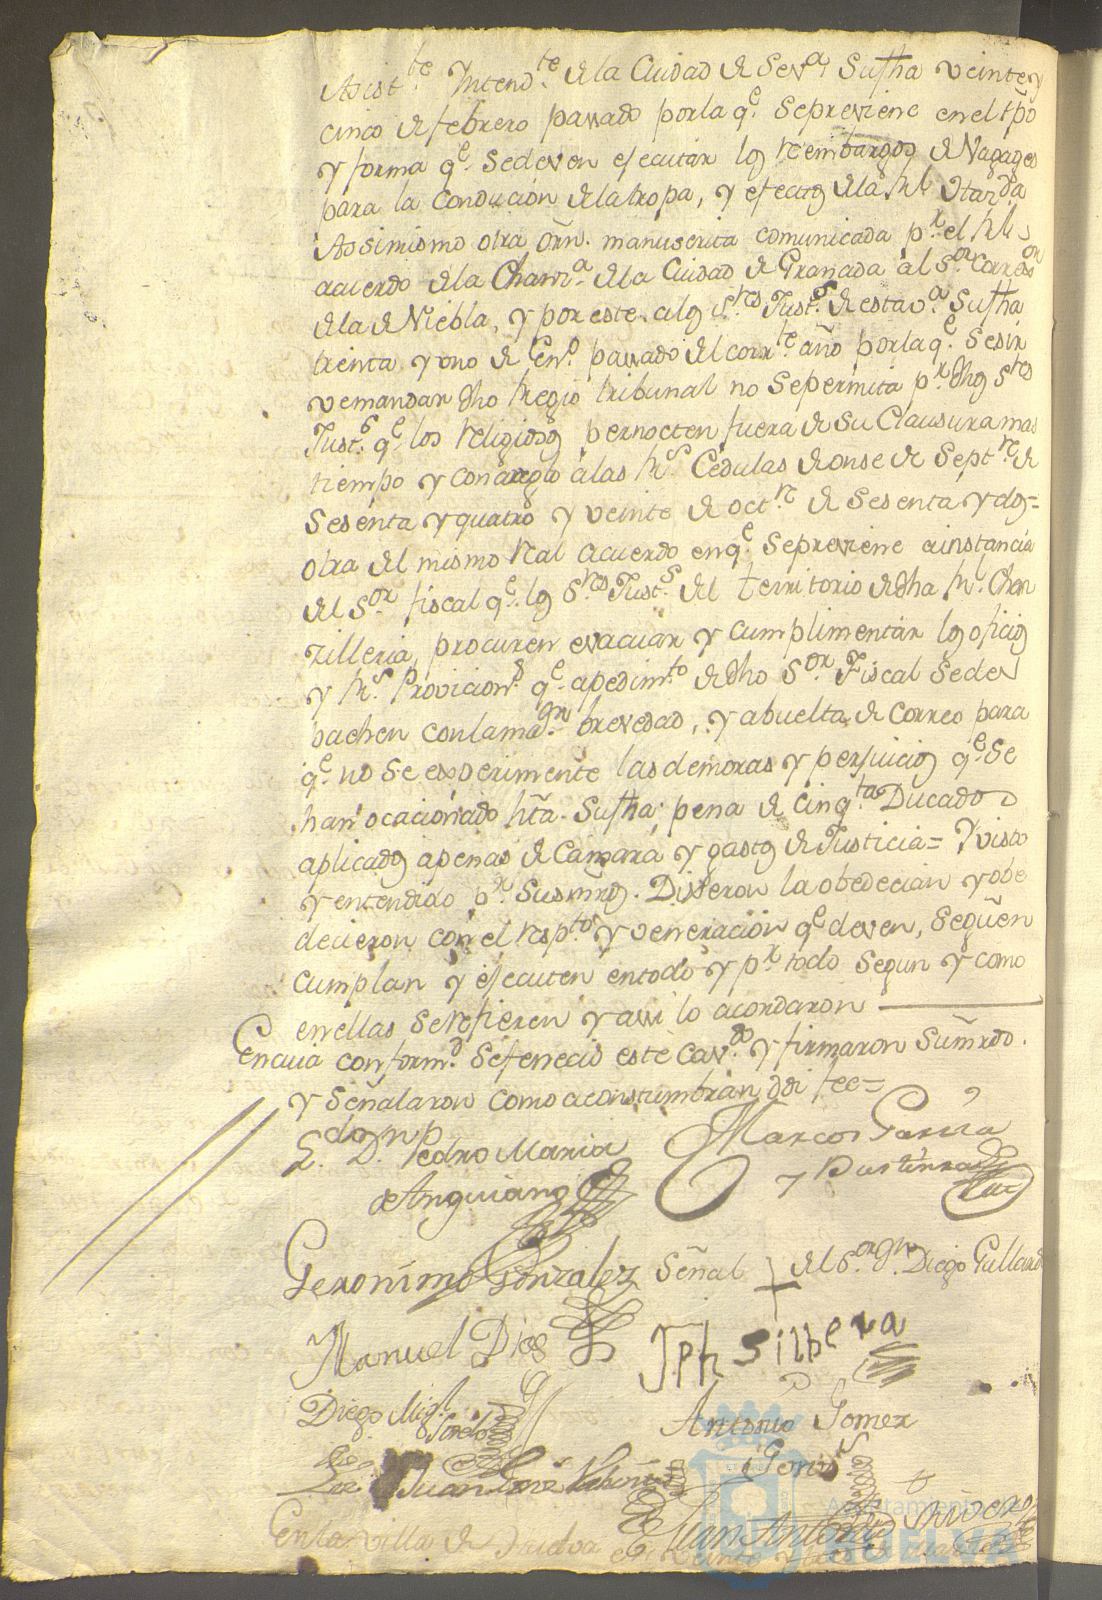 Asist.te Yntend.te de la Ciudad de Sev.a su fha veinte y
cinco de febrero passado por la q.e se previene en el tpo
y forma q.e se deven ejecutar los rembargos de Vagages
para la Conducion de la tropa, y efectos de la Rl
Assimismo otra orn. manuscrita comunicada p.r el Rl
acuerdo de la Chan.a de la Ciudad de Granada al S.or Corr.or
de la de Niebla, y por este a los S.res Just.s de esta v.a su fha
treinta y uno de En.o passado del corr.te año por la q.e se sir
ve mandar dho Regio tribunal no se permita p.r dhos S.res
Just.s q.e los Religiosos pernocten fuera de su Clausura mas
tiempo y con areglo a las R.s Cedulas de onse de Sept.re de
sesenta y quatro y veinte de oct.re de sesenta y dos=
otra del mismo Real acuerdo en q.e se previene a instancia
del S.or fiscal q.e los S.res Just.s del territorio de dha R.l Chan
zilleria, procuren evacuar y cumplimentar los oficios
y R.s Provicion.s q.e a pedim.to de dho S.or Fiscal se des
pachen con la ma.or brevedad, y a buelta de Correo para
q.e no se experimente las demoras y perjuicios q.e se
han ocacionado hta. su fha: pena de cinq.ta Ducados
aplicados a penas de Camara y gastos de Justicia= Y visto
y entendido p.r sus mrds. Dixeron la obedecian y obe
decieron con el resp.to y veneracion q.e deven, se guden
cumplan y ejecuten en todo y p.r todo segun y como
en ellas se refieren y assi lo acordaron
En cuia conform.d se feneció este Cav.do y firmaron sumrds.
y señalaron como acostumbran doi fee=
L. D.n Pedro Maria Marcos Garcia
de Anguiano
Geronimo Gonzalez Señal † del S.or Diego Gallardo
Manuel Dias Jph Silbera
Diego Mig.l Antonio Gomez
Juan
Juan Antonio Rivero
En la villa de Huelva en veinte
Ayuntamiento
HUELVA